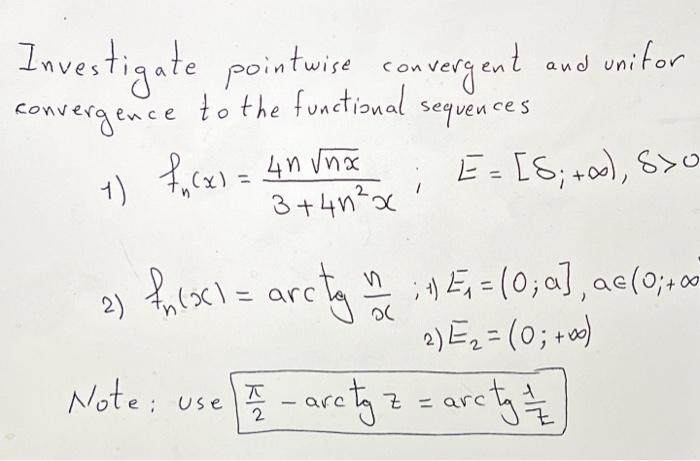 Investigate pointwise convergent and unifor
convergence to the functional sequences
1) fₙ(x) = 4n√(nx) / (3+4n²x) ; E = [δ; +∞), δ>0
2) fₙ(x) = arctg n/x ; 1) E₁ = (0; a], a∈(0; +∞
2) E₂ = (0; +∞)
Note: use π/2 - arctg z = arctg 1/z